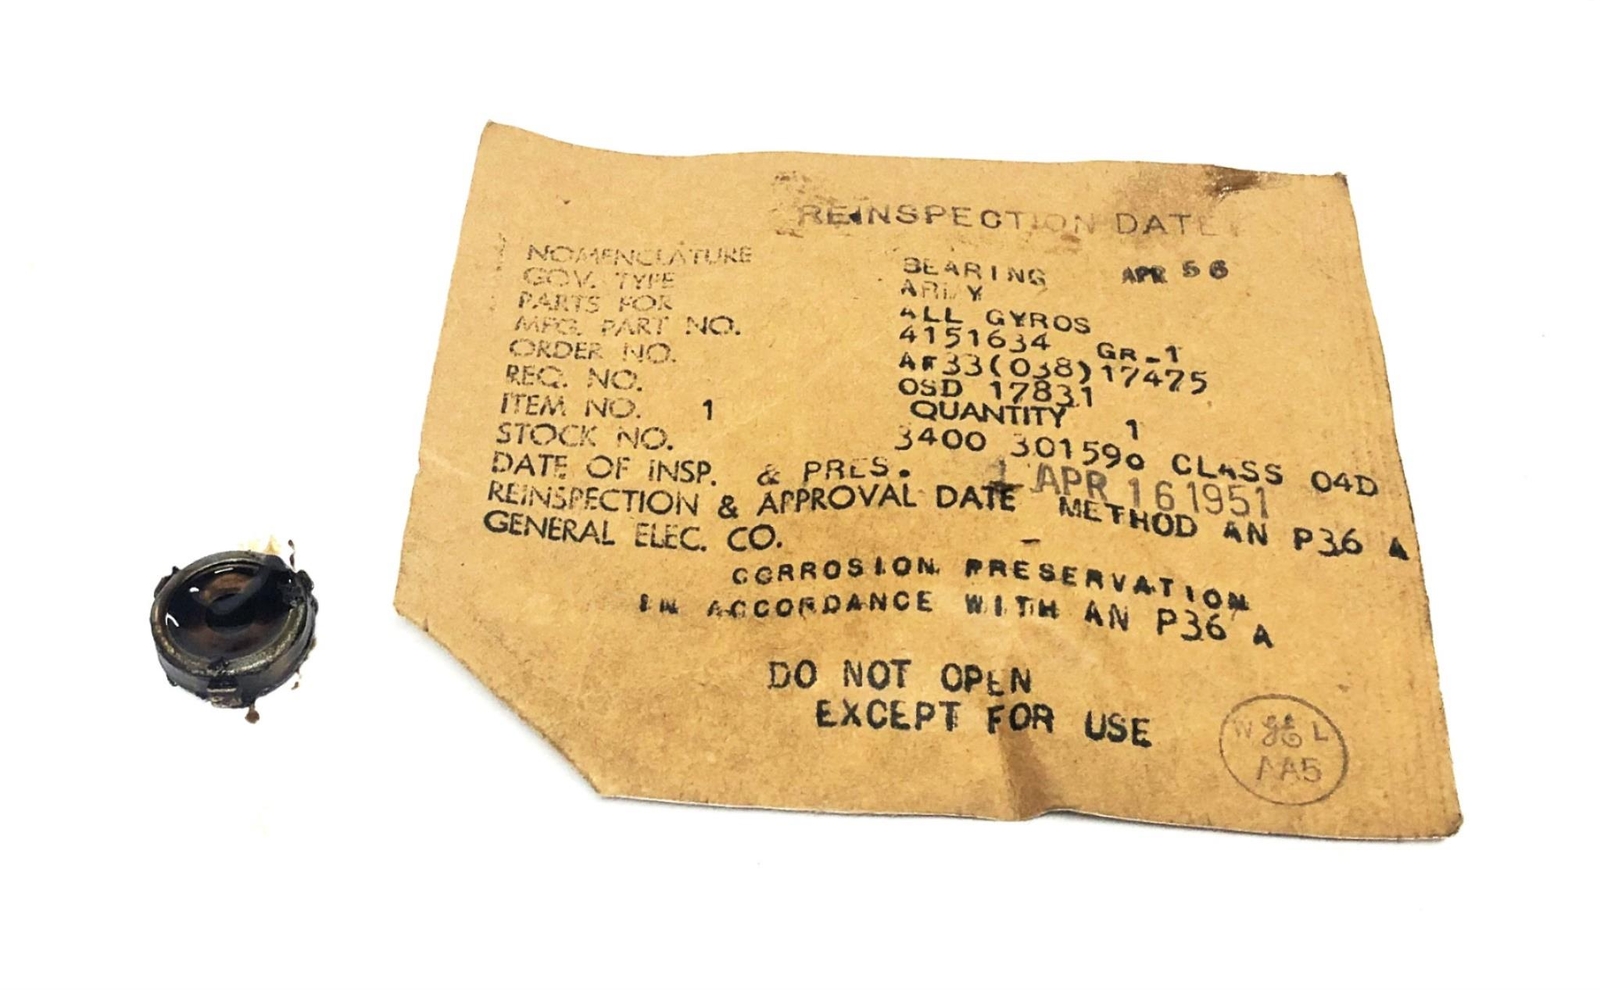 REINSPECTION DATE
NOMENCLATURE BEARING APR 56
GOV. TYPE ARMY
PARTS FOR ALL GYROS
MFG. PART NO. 4151634 GR-1
ORDER NO. AF33(038)17475
REQ. NO. OSD 17831
ITEM NO. 1 QUANTITY 1
STOCK NO. 3400 301590 CLASS 04D
DATE OF INSP. & PRES. 1 APR 16 1951
REINSPECTION & APPROVAL DATE METHOD AN P36 A
GENERAL ELEC. CO.
CORROSION PRESERVATION
IN ACCORDANCE WITH AN P36 A
DO NOT OPEN
EXCEPT FOR USE
W GE L
AA5